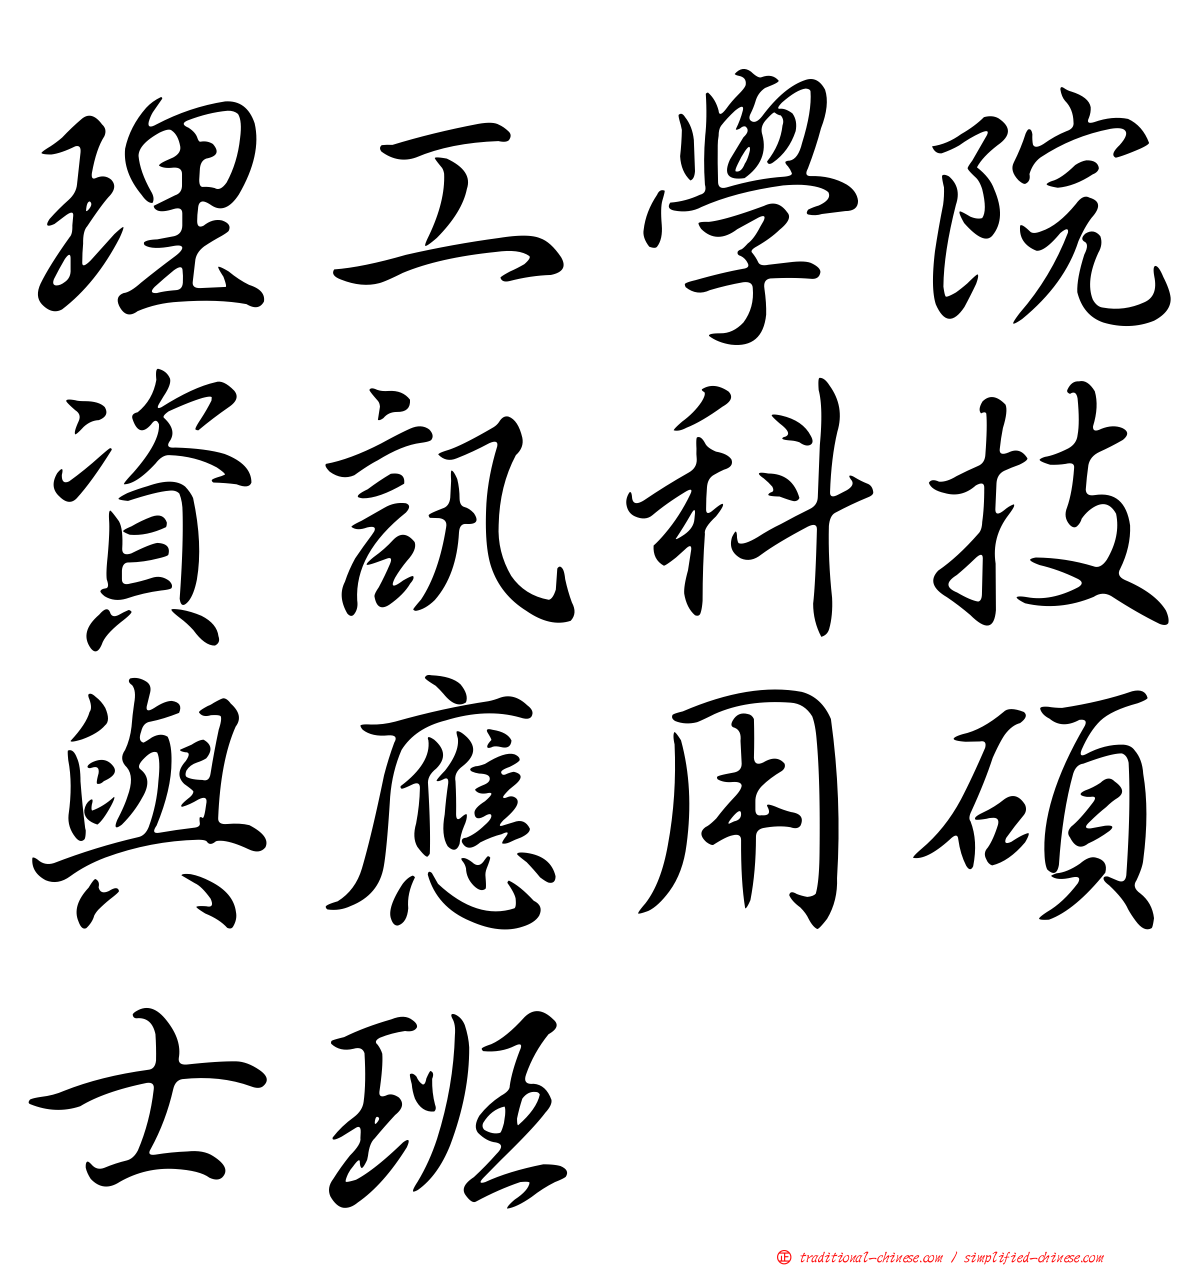 理工學院
資訊科技
與應用碩
士班
正 traditional-chinese.com / simplified-chinese.com